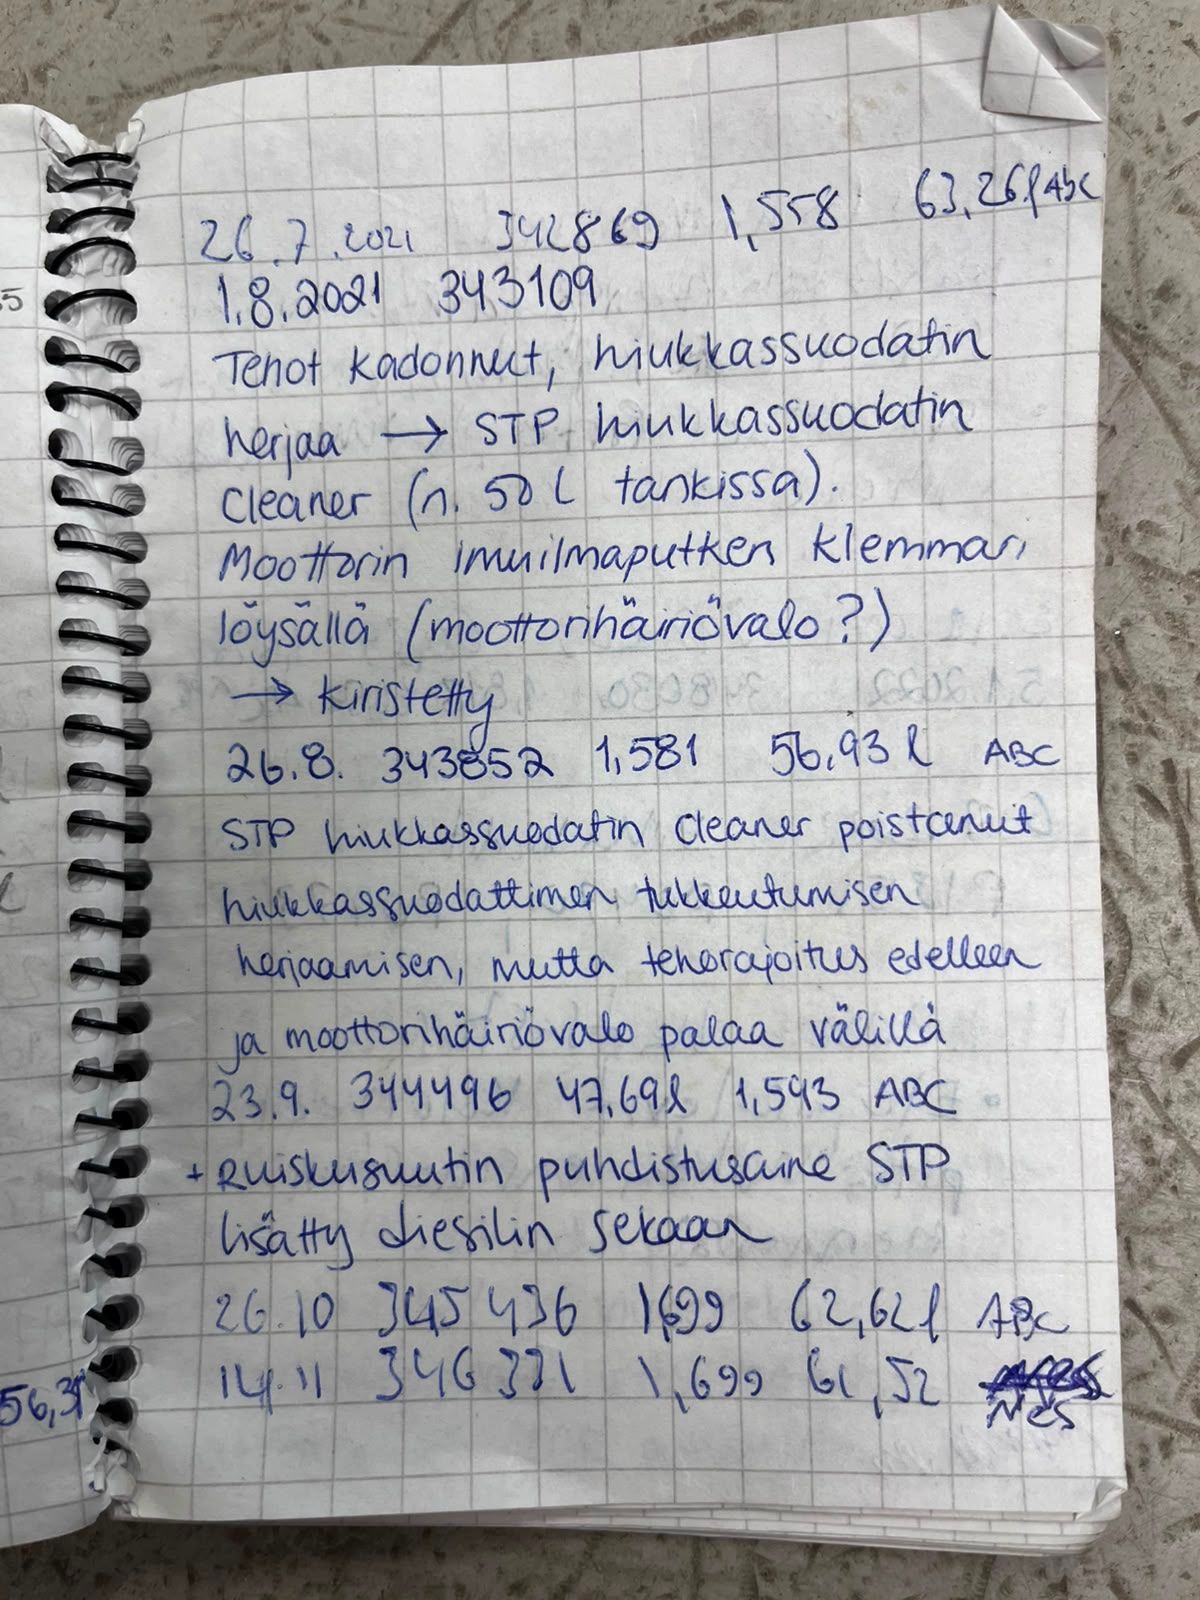 26.7.2021 342869 1,558 63,26l ABC
1.8.2021 343109
Tehot kadonnut, hiukkassuodatin
herjaa → STP hiukkassuodatin
cleaner (n. 50 l tankissa).
Moottorin imuilmaputken klemmari
löysällä (moottorihäiriövalo?)
→ kiristetty
26.8. 343852 1,581 56,93 l ABC
STP hiukkassuodatin cleaner poistanut
hiukkassuodattimen tukkeutumisen
herjaamisen, mutta tehorajoitus edelleen
ja moottorihäiriövalo palaa välillä
23.9. 344496 47,69l 1,593 ABC
+ Ruiskusuutin puhdistusaine STP
lisätty dieselin sekaan
26.10 345436 1,699 62,62l ABC
14.11 346331 1,699 61,52
Nes
56,31